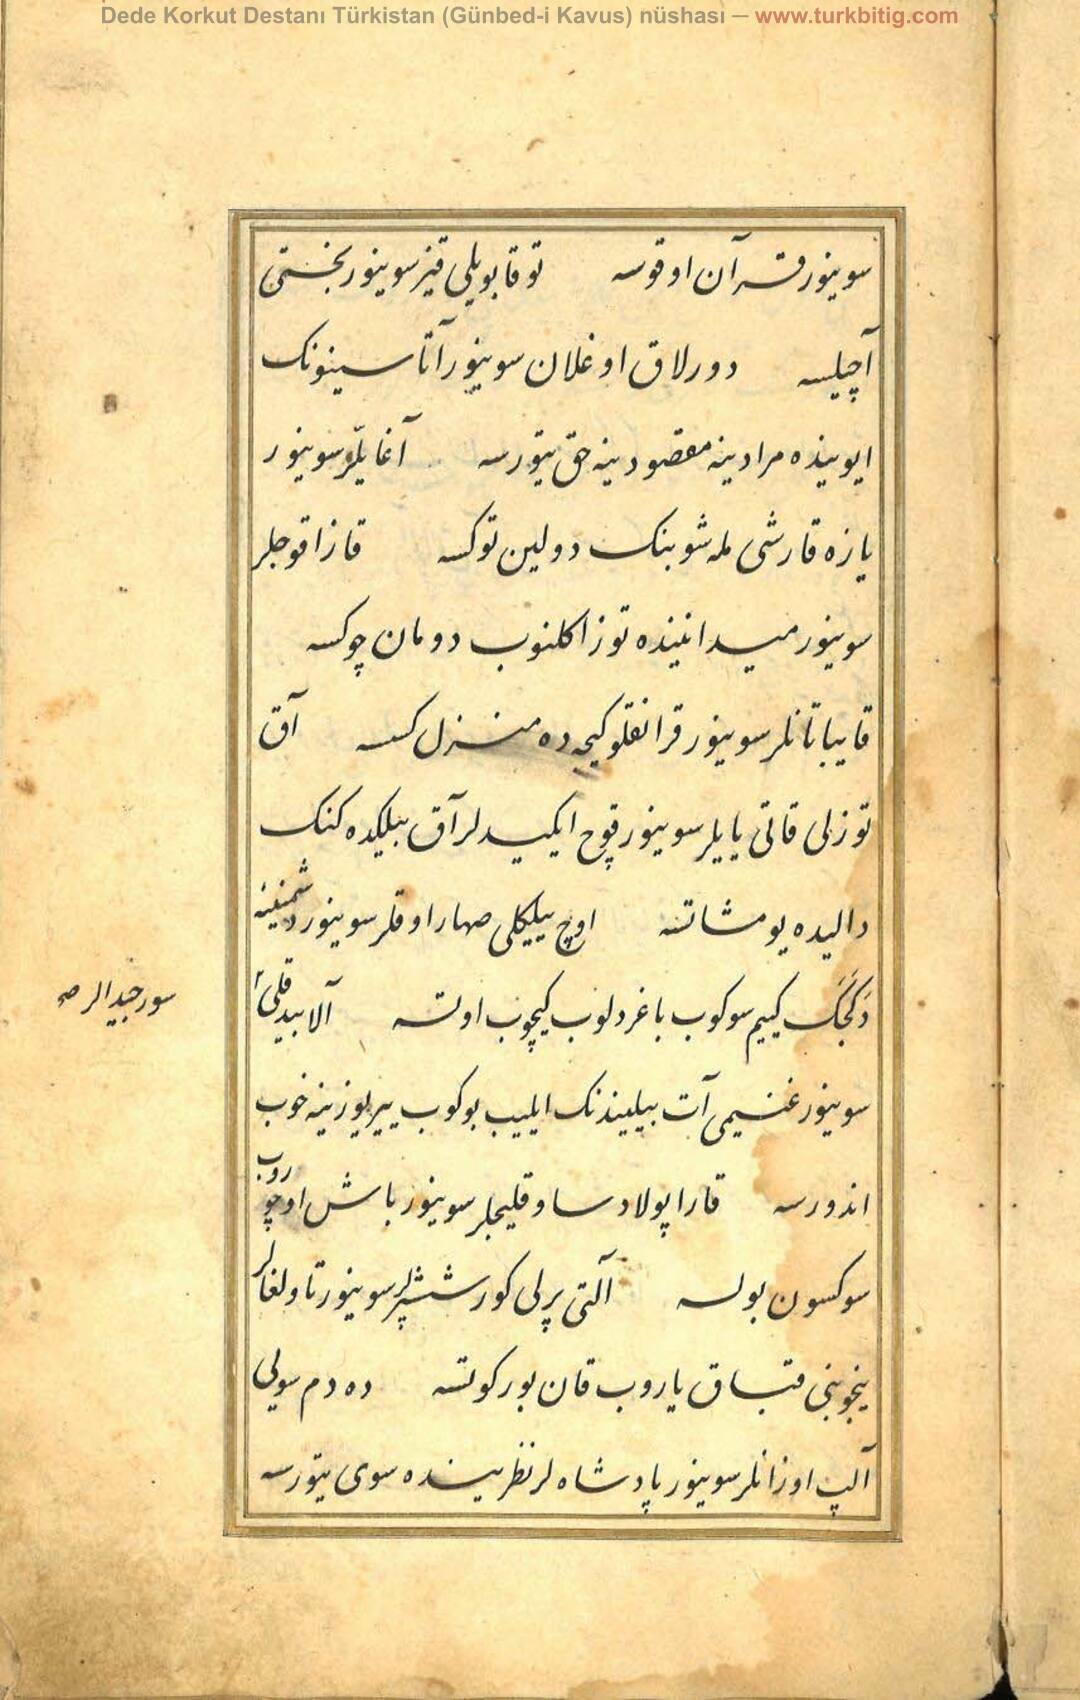 Dede Korkut Destanı Türkistan (Günbed-i Kavus) nüshası — www.turkbitig.com
سوینور قرآن اوقوسه توقا بویلی قیز سوینور بختی
آچیلسه دورلاق اوغلان سوینور آتا سینونک
ایوینده مرادینه مقصودینه حق یتورسه آغایلر سوینور
یازه قارشی مله شوبنک دولین توکسه قازاقوجلر
سوینور میداننده توز اکلنوب دومان چوکسه
قایباتانلر سوینور قرانقلو کیجه ده منزل کسسه آق
توزلی قاتی یایلر سوینور قوچ ایکیدلر آق بیلکده کنک
دالیده یومشاتسه اوچ ییلیکلی صهار اوقلر سوینور دشمنینه
دکجک کییم سوکوب باغردلوب کیچوب اوتسه آلا بیدقلی
سوینور غنیمی آت بیلیندنک ایلیب بوکوب ییر یوزینه خوب
اندورسه قارا پولاد ساو قلیجلر سوینور باش اوچوروب
سوکسون بولسه آلتی پرلی کور ششپرلر سوینور تاولغالر
ینجوبنی قتباق یاروب قان بورکوتسه ده دم سویلی
آلپ اوزانلر سوینور پادشاه لر نظرینده سوی یتورسه